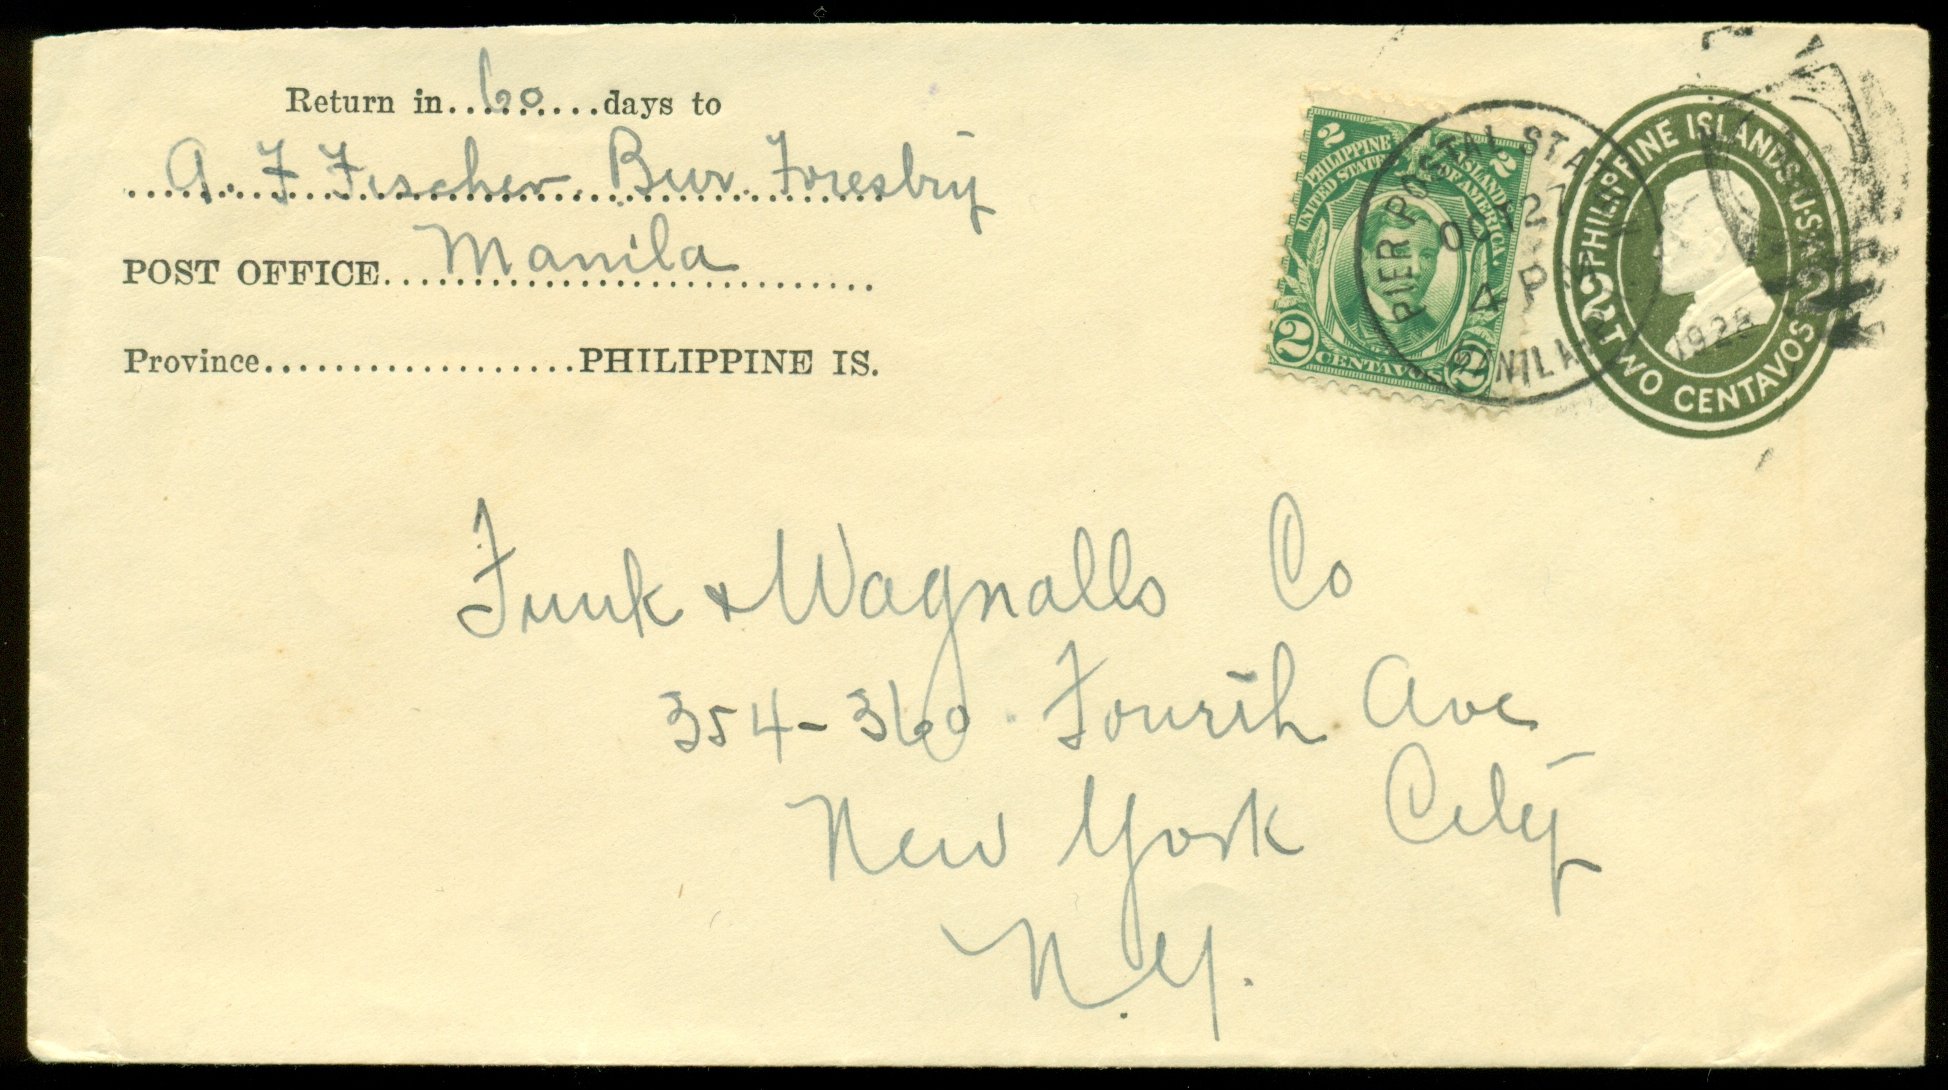 Return in..60..days to
A. F. Fischer. Bur. Forestry
POST OFFICE...Manila...
Province...................PHILIPPINE IS.
2 2
PHILIPPINE ISLANDS
UNITED STATES OF AMERICA.
2 CENTAVOS 2
PIER POSTAL STATION
OCT 27
4 P
1928
MANILA P.I.
PHILIPPINE ISLANDS·U·S·A·
2 TWO CENTAVOS 2
Funk & Wagnalls Co
354-360 Fourth Ave
New York City
N. Y.